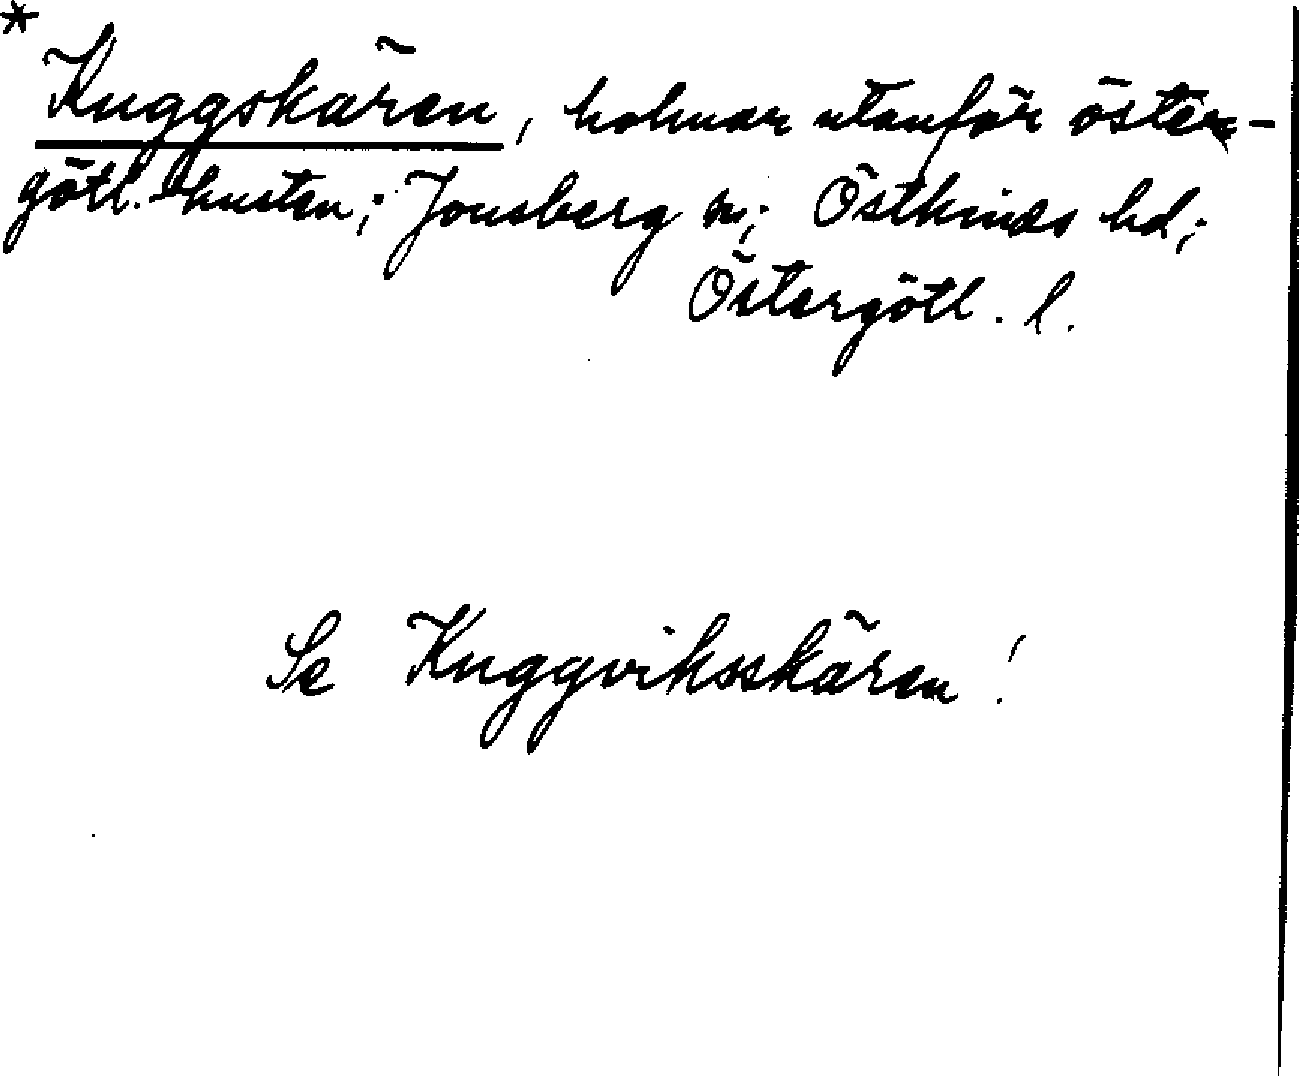 *
Kuggskären, holmar utanför öster-
götl. kusten; Jonsberg sn; Östkinds hd;
Östergötl. l.
Se Kuggviksskären!